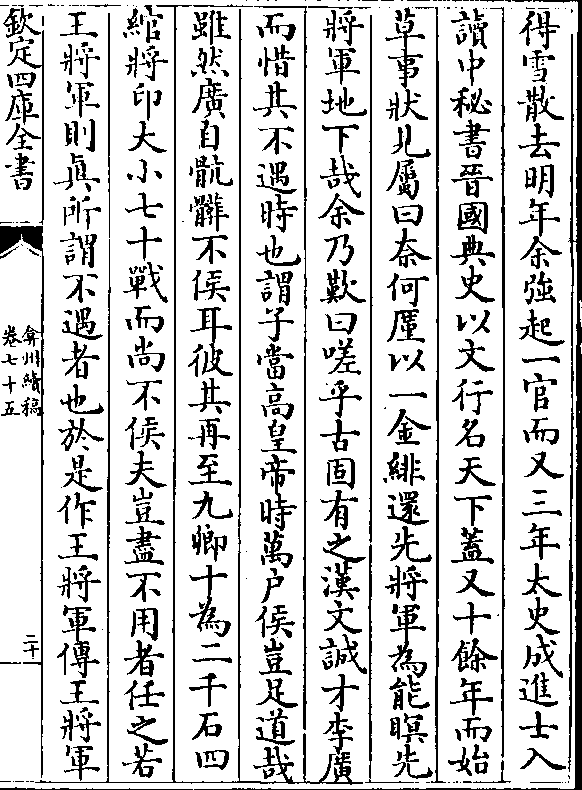 得雪散去明年余強起一官而又三年太史成進士入
讀中秘書晉國典史以文行名天下蓋又十餘年而始
草事狀見屬曰奈何廑以一金緋還先將軍為能瞑先
將軍地下哉余乃歎曰嗟乎古固有之漢文誠才李廣
而惜其不遇時也謂子當高皇帝時萬戶侯豈足道哉
雖然廣自骯髒不侯耳彼其再至九卿十為二千石四
綰將印大小七十戰而尚不侯夫豈盡不用者任之若
王將軍則真所謂不遇者也於是作王將軍傳王將軍
欽定四庫全書
弇州續稿
卷七十五
二十